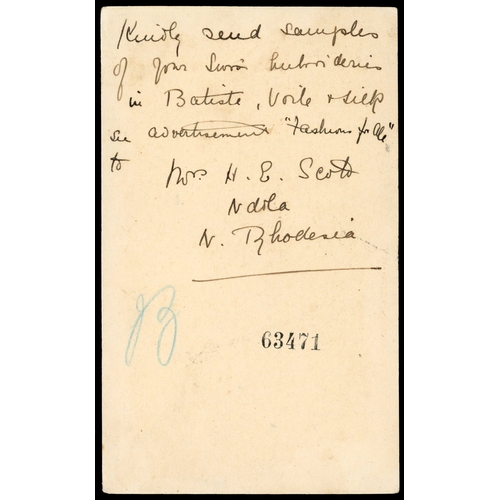 Kindly send samples
of your Swiss Embroideries
in Batiste, Voile + silk
see advertisement "Fashions for All"
to
Mrs H. E. Scott
Ndola
N. Rhodesia
B
63471